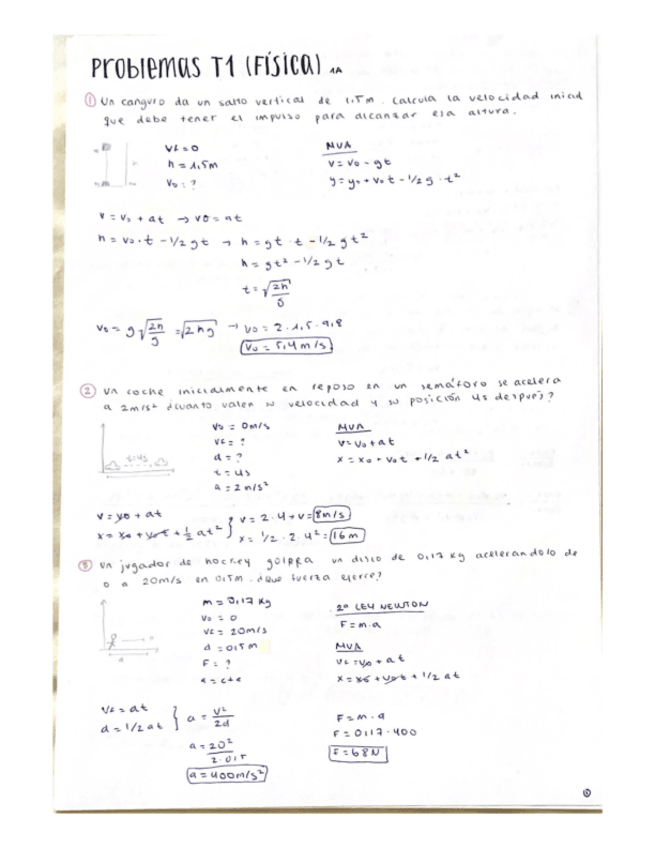 Problemas T1 (Física) 1A
① Un canguro da un salto vertical de 1,5m. Calcula la velocidad inicial
que debe tener el impulso para alcanzar esa altura.
vf=0
h=1,5m
v0:?
MUA
v=v0-gt
y=y0+v0t-1/2g·t²
v=v0+at → v0=at
h=v0·t-1/2gt → h=gt·t-1/2gt²
h=gt²-1/2gt
t=√2h/g
v0=g√2h/g=√2hg → v0=2·1,5·9,8
v0=5,4m/s
② Un coche inicialmente en reposo en un semáforo se acelera
a 2m/s² ¿cuanto valen su velocidad y su posición 4s después?
t=4s
v0=0m/s
vf=?
d=?
t=4s
a=2m/s²
MUA
v=v0+at
x=x0+v0t+1/2at²
v=v0+at
x=x0+v0t+1/2at² } v=2·4→v=8m/s
x=1/2·2·4²=16m
③ Un jugador de hockey golpea un disco de 0,17kg acelerandolo de
0 a 20m/s en 0,5m. ¿Que fuerza ejerce?
m=0,17kg
v0=0
vf=20m/s
d=0,5m
F=?
a=cte
2ª LEY NEWTON
F=m·a
MUA
vf=v0+at
x=x0+v0t+1/2at
vf=at
d=1/2at } a=v²/2d
a=20²/2·0,5
a=400m/s²
F=m·a
F=0,17·400
F=68N